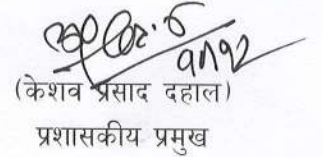 (केशव प्रसाद दहाल)
प्रशासकीय प्रमुख